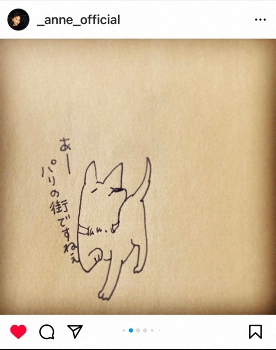 _anne_official
あー
パリの街ですねぇ